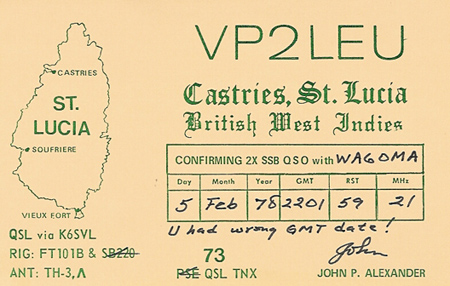 VP2LEU
Castries, St. Lucia
British West Indies
CASTRIES
ST.
LUCIA
SOUFRIERE
VIEUX FORT
CONFIRMING 2X SSB QSO with WA6OMA
Day Month Year GMT RST MHz
5 Feb 78 2201 59 21
U had wrong GMT date!
QSL via K6SVL
RIG: FT101B & SB220
ANT: TH-3, Λ
73
PSE QSL TNX
John
JOHN P. ALEXANDER